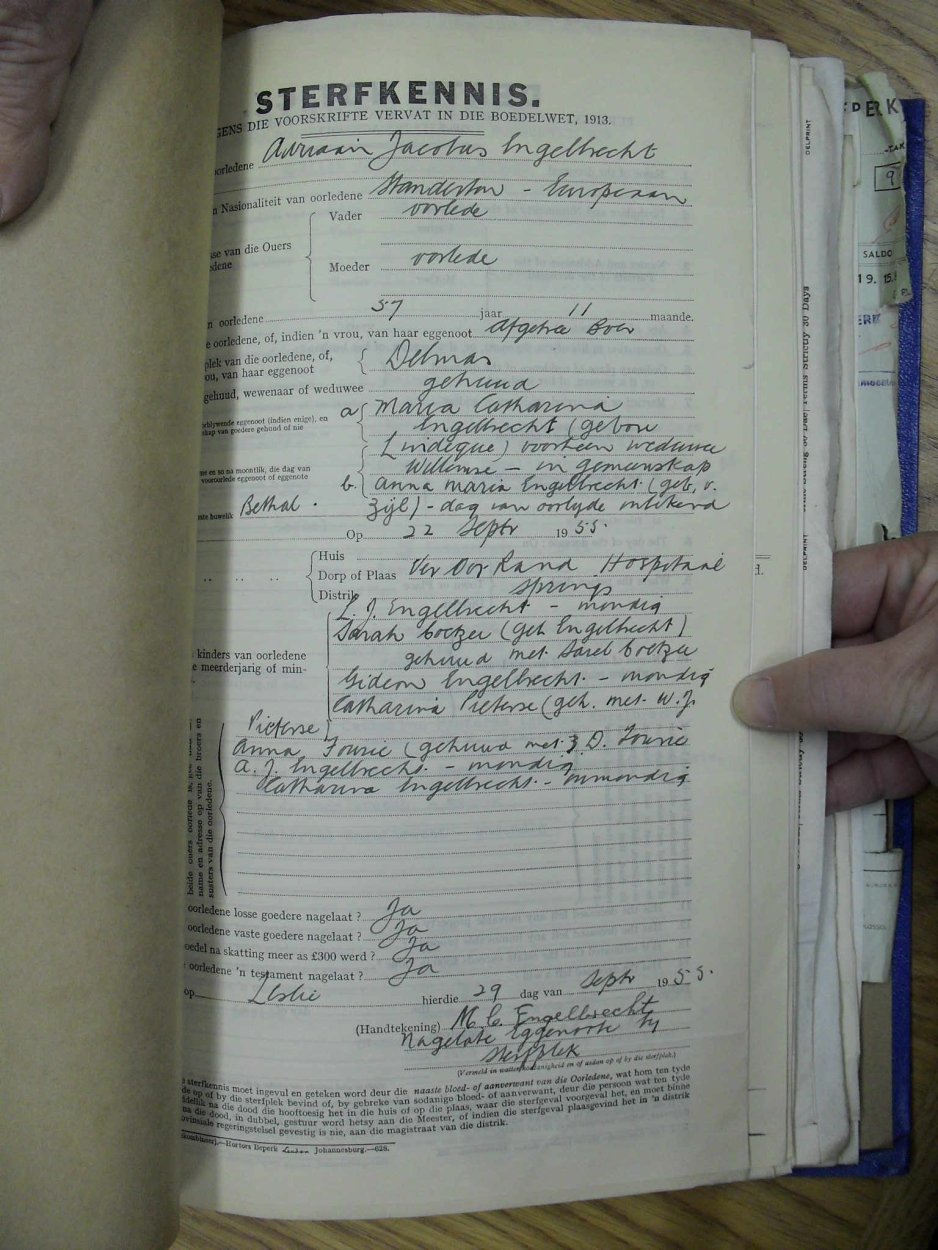 STERFKENNIS.
GENS DIE VOORSKRIFTE VERVAT IN DIE BOEDELWET, 1913.
oorledene Adriaan Jacobus Engelbrecht
n Nasionaliteit van oorledene Standerton - Europeaan
Vader oorlede
se van die Ouers
edene
Moeder oorlede
n oorledene 57 jaar 11 maande.
e oorledene, of, indien 'n vrou, van haar eggenoot Afgetree Boer
plek van die oorledene, of,
ou, van haar eggenoot Delmas
gehuud, wewenaar of weduwee gehuud
rblywende eggenoot (indien enige), en
skap van goedere gehuud of nie
a Maria Catharina
Engelbrecht (gebore
Lindeque) voorheen weduwee
Willemse - in gemeenskap
me en so na moontlik, die dag van
vooroorlede eggenoot of eggenote
b. Anna Maria Engelbrecht (geb. v.
ste huwelik Bethal. Zijl) - dag van oorlyde onbekend
Op 22 Septr 1955.
Huis
Dorp of Plaas Ver Oos Rand Hospitaal
Distrik Springs
L. J. Engelbrecht - mondig
Sarah Coetzee (geb Engelbrecht)
gehuud met Sarel Coetzee
kinders van oorledene
e meerderjarig of min-
Gideon Engelbrecht. - mondig
Catharina Pieterse (geh. met W. J.
Pieterse)
Anna Fourie (gehuud met J. D. Fourie
A. J. Engelbrecht. - mondig
Catharina Engelbrecht. - onmondig
name en adresse op van die broers en
susters van die oorledene.
oorledene losse goedere nagelaat? Ja
oorledene vaste goedere nagelaat? Ja
oedel na skatting meer as £300 werd? Ja
oorledene 'n testament nagelaat? Ja
op Leslie hierdie 29 dag van Septr 1955.
(Handtekening) M. C. Engelbrecht
Nagelate Eggenoote by
sterfplek
(Vermeld in watter hoedanigheid en of aedan op of by die sterfplek.)
e sterfkennis moet ingevul en geteken word deur die naaste bloed- of aanverwant van die Oorledene, wat hom ten tyde
de op of by die sterfplek bevind of, by gebreke van sodanige bloed- of aanverwant, deur die persoon wat ten tyde
na die dood die hooftoesig het in die huis of op die plaas, waar die sterfgeval voorgeval het, en moet binne
na die dood, in dubbel, gestuur word hetsy aan die Meester, of indien die sterfgeval plaasgevind het in 'n distrik
ovinsiale regeringstelsel gevestig is nie, aan die magistraat van die distrik.
Hortors Beperk Johannesburg.—628.
DELPRINT
SALDO